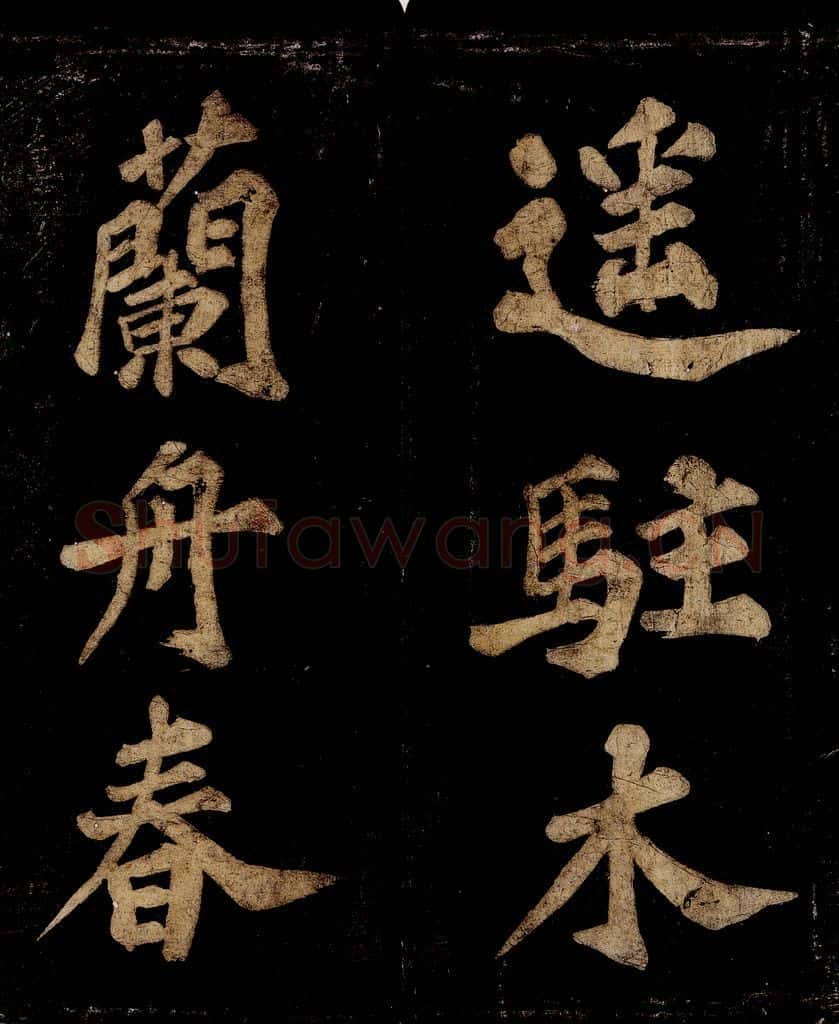 遥駐木
蘭舟春
ShuTawang.CN